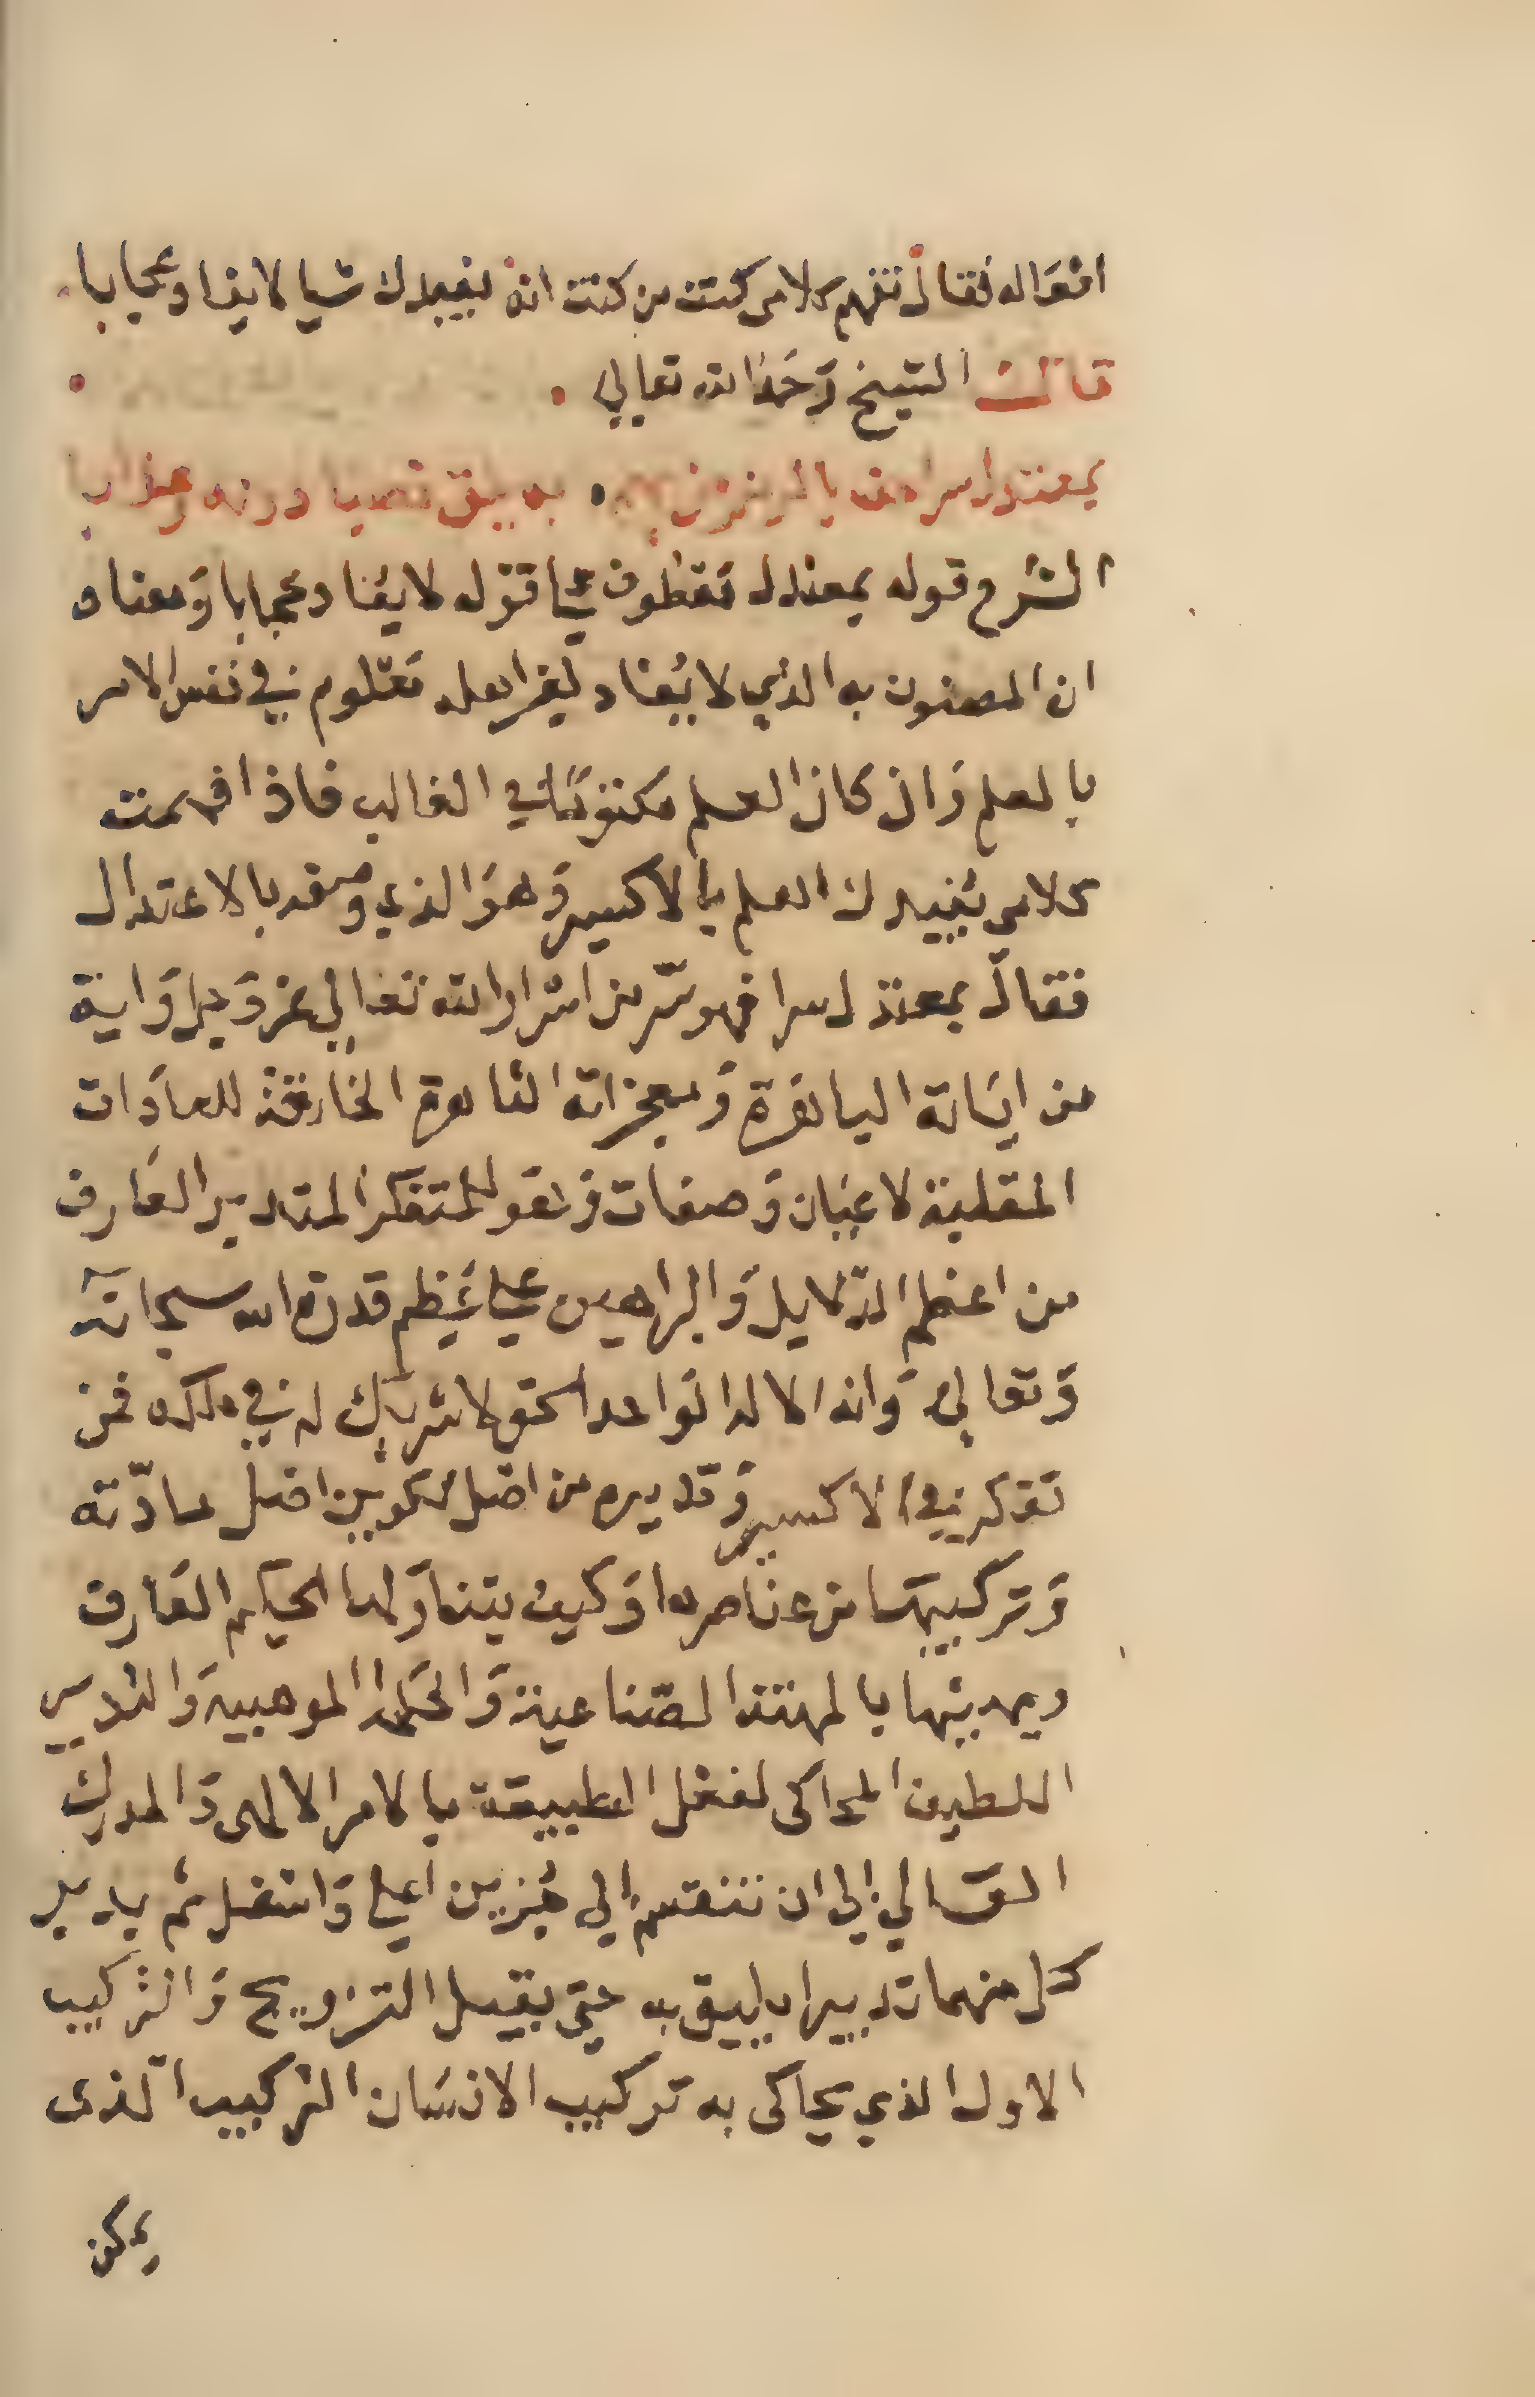 اقواله فقال تفهم كلامي كيت من كنت انه يفيدك شيا لايفا وعجابا
قال الشيخ رحمه الله تعالي
بمعتدل سر به يلق دونه وعذابا
الشرح قوله بمعتدل معطوف علي قوله لايفاد عجابا ومعناه
ان المضنون به الذي لا يفاد لغير اهله معلوم في نفس الامر
بالعلم وان كان العلم مكتوما في الغالب فاذا فهمت
كلامي يفيدك العلم بالاكسير وهو الذي وصفه بالاعتدال
فقال بمعتدل سر فهو سر من اسرار الله تعالي عز وجل واية
من اياته الباهرة ومعجزاته القاهرة الخارقة للعادات
المقلبة لاعيان وصفات وهو للمتفكر المتدبر العارف
من اعظم الدلايل والبراهين علي عظيم قدرة الله سبحانه
وتعالي وانه الاله الواحد الحق لا شريك له في ملكه فمن
تفكر في الاكسير وتدبيره من اصل تكوين اصل مادته
وتركيبها من عناصرها وكيف يتناولها الحكيم العارف
ويهذبها بالمهنة الصناعية والحكمة الموهبية والتدبير
اللطيف المحاكى لفعل الطبيعة بالامر الالهى والمدرك
العالي الي ان تنقسم الي جزين اعلي واسفل ثم يدبر
كل منهما تدبيرا يليق به حتي يقبل التزويج والتركيب
الاول الذي يحاكى به تركيب الانسان التركيب الذى
يمكن